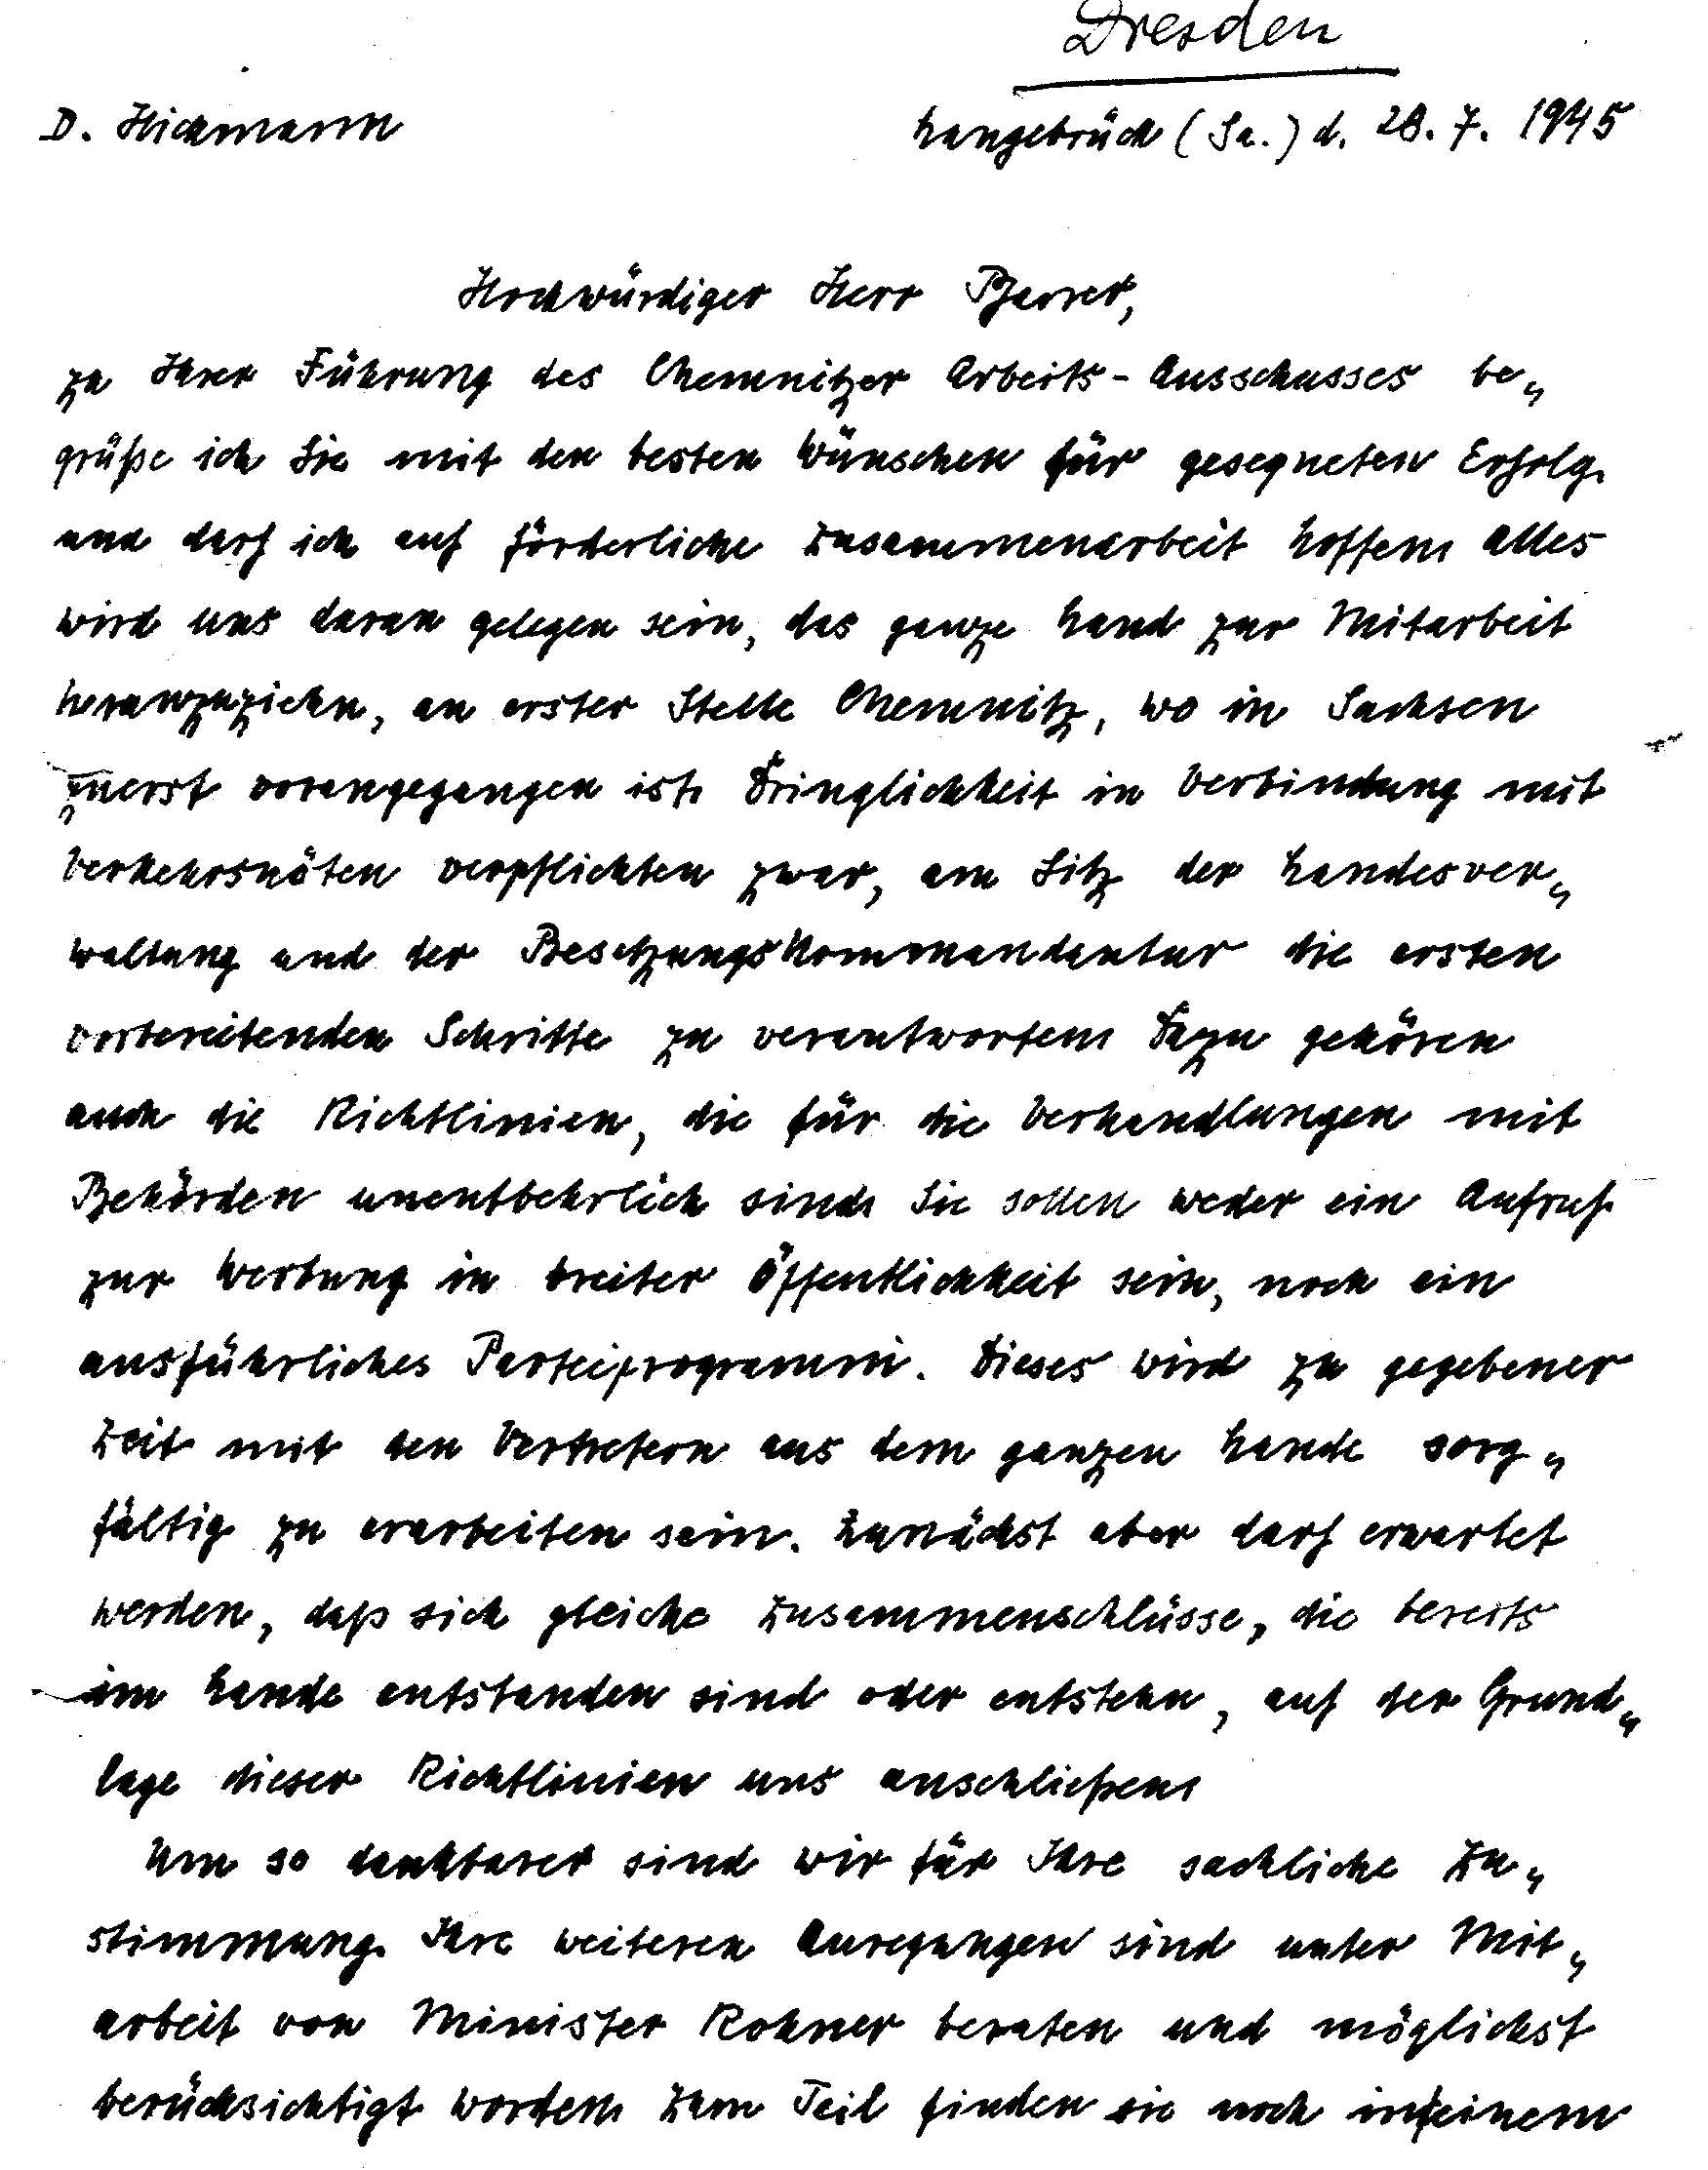 Dresden
D. Hickmann
Langebrück (Sa.) d. 28. 7. 1945
Hochwürdiger Herr Pfarrer,
zu Ihrer Führung des Chemnitzer Arbeits-Ausschusses be„
grüße ich Sie mit den besten Wünschen für gesegneten Erfolg.
und darf ich auf förderliche Zusammenarbeit hoffen. Alles
wird uns daran gelegen sein, das ganze Land zur Mitarbeit
heranzuziehn, an erster Stelle Chemnitz, wo in Sachsen
zuerst vorangegangen ist. Dringlichkeit in Verbindung mit
Verkehrsnöten verpflichten zwar, am Sitz der Landesver„
waltung und der Besetzungskommandantur die ersten
vorbereitenden Schritte zu verantworten. Dazu gehören
auch die Richtlinien, die für die Verhandlungen mit
Behörden unentbehrlich sind. Sie sollen weder ein Aufruf
zur Werbung in breiter Öffentlichkeit sein, noch ein
ausführliches Parteiprogramm. Dieses wird zu gegebener
Zeit mit den Vertretern aus dem ganzen Lande sorg„
fältig zu erarbeiten sein. Zunächst aber darf erwartet
werden, daß sich gleiche Zusammenschlüsse, die bereits
im Lande entstanden sind oder entstehn, auf der Grund„
lage dieser Richtlinien uns anschließen.
Um so dankbarer sind wir für Ihre sachliche Zu„
stimmung. Ihre weiteren Anregungen sind unter Mit„
arbeit von Minister Rohner beraten und möglichst
berücksichtigt worden. Zum Teil finden sie noch in einem